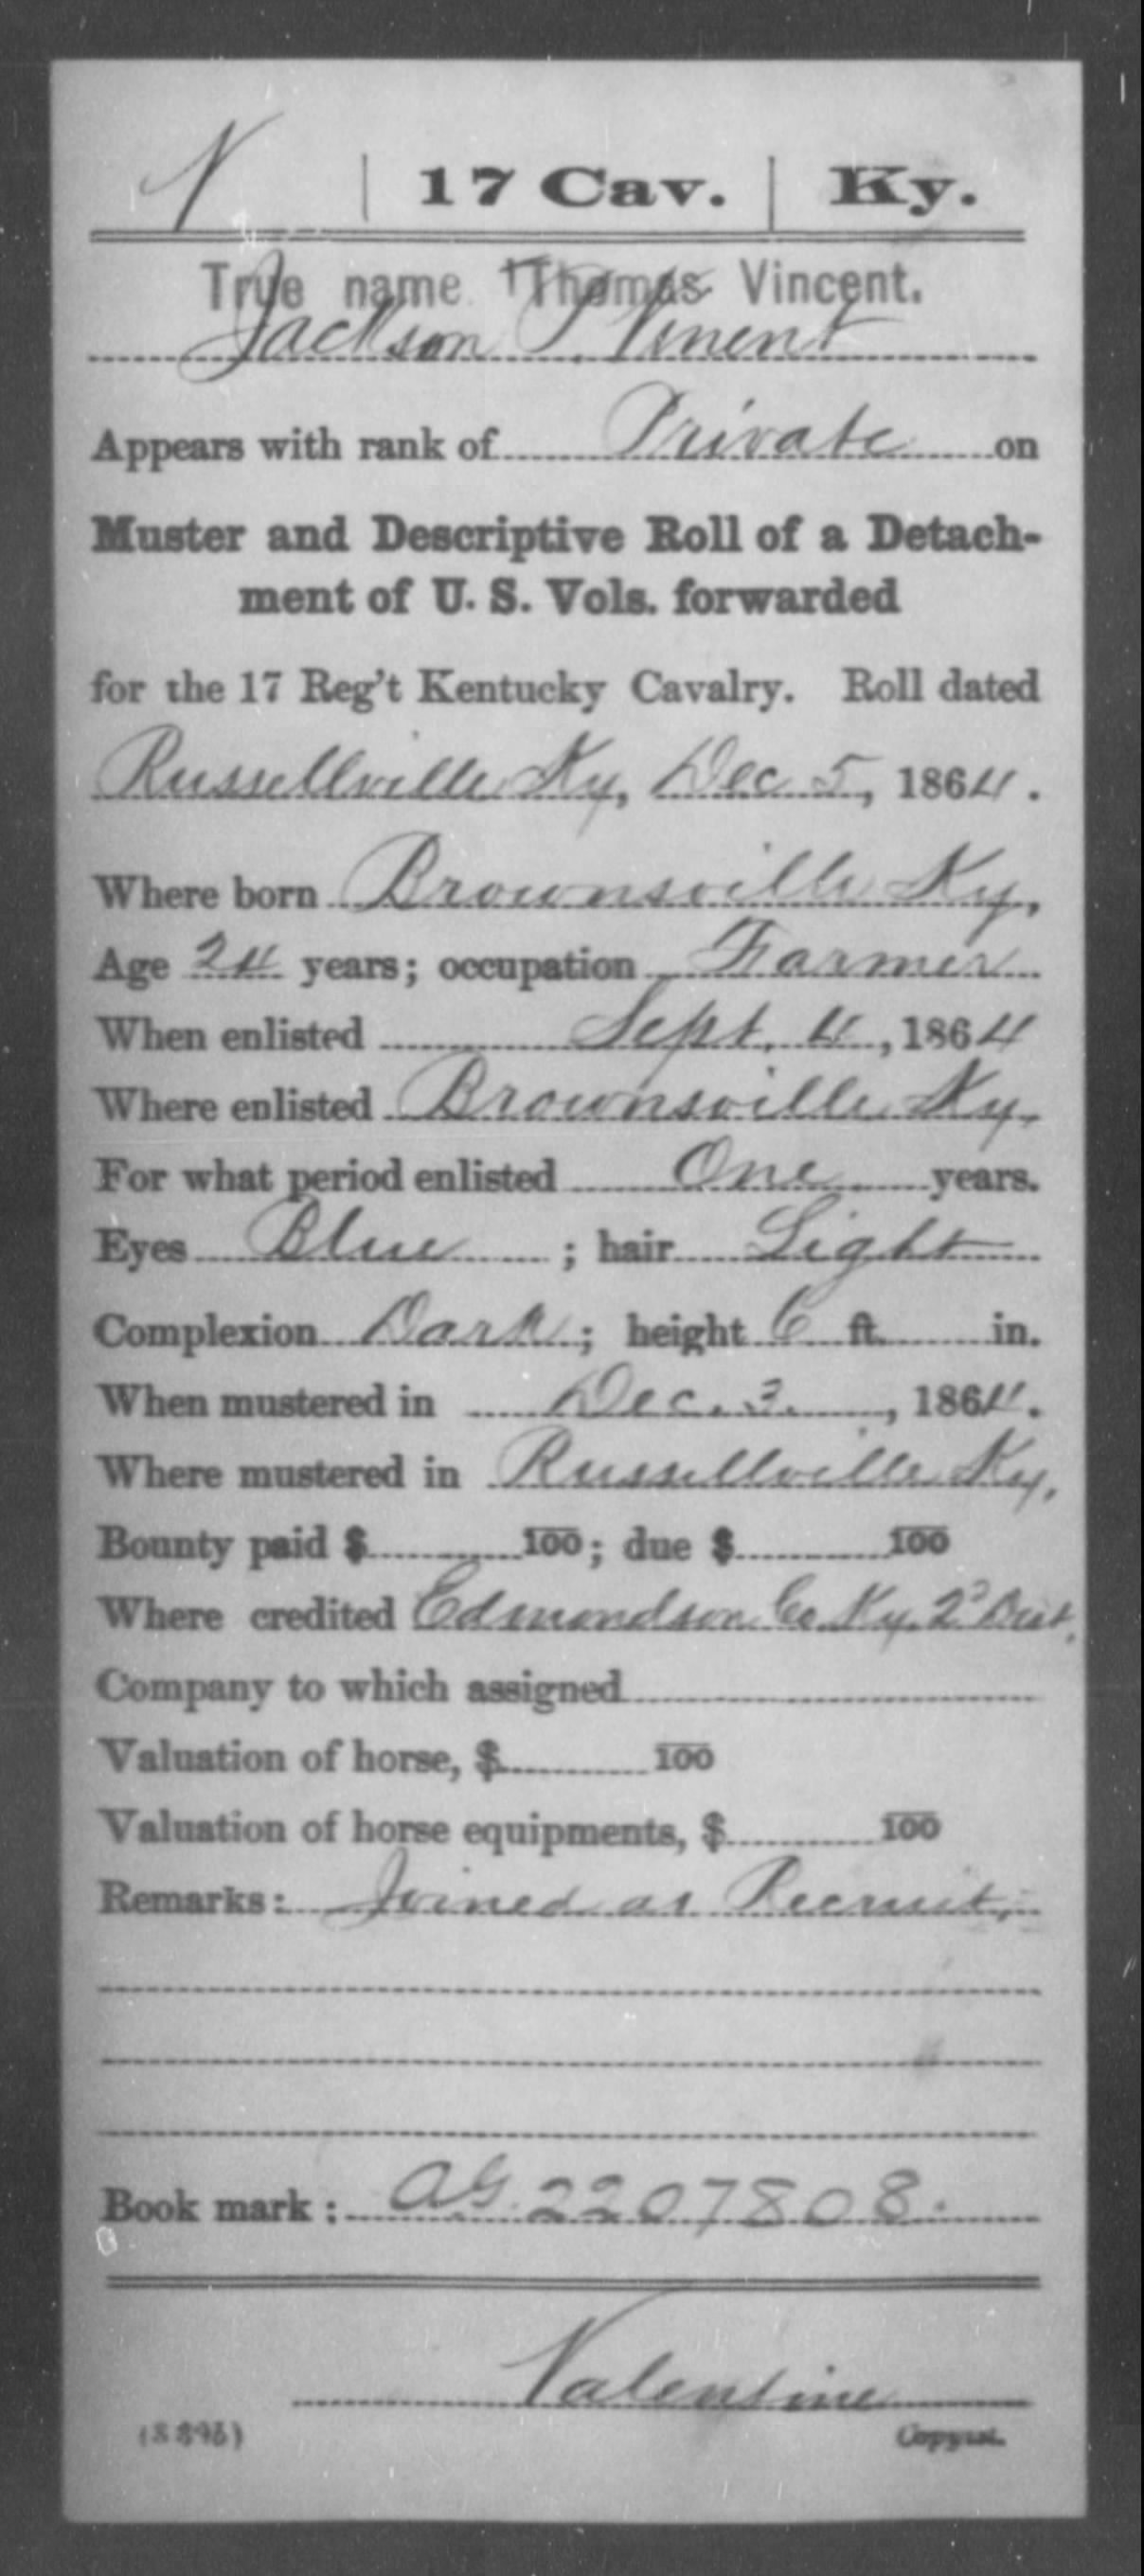 V | 17 Cav. | Ky.
True name Thomas Vincent.
Jackson T Vinent
Appears with rank of Private on
Muster and Descriptive Roll of a Detach-
ment of U. S. Vols. forwarded
for the 17 Reg't Kentucky Cavalry. Roll dated
Russellville Ky, Dec 5, 1864.
Where born Brownsville Ky,
Age 24 years; occupation Farmer
When enlisted Sept. 4, 1864
Where enlisted Brownsville Ky.
For what period enlisted One years.
Eyes Blue ; hair Light
Complexion Dark; height 6 ft. in.
When mustered in Dec. 3, 1864.
Where mustered in Russellville Ky,
Bounty paid $ 100; due $ 100
Where credited Edmondson Co. Ky. 2d Dist,
Company to which assigned
Valuation of horse, $ 100
Valuation of horse equipments, $ 100
Remarks: Joined as Recruit,
Book mark: AG. 2207808.
Valentine
Copyist.